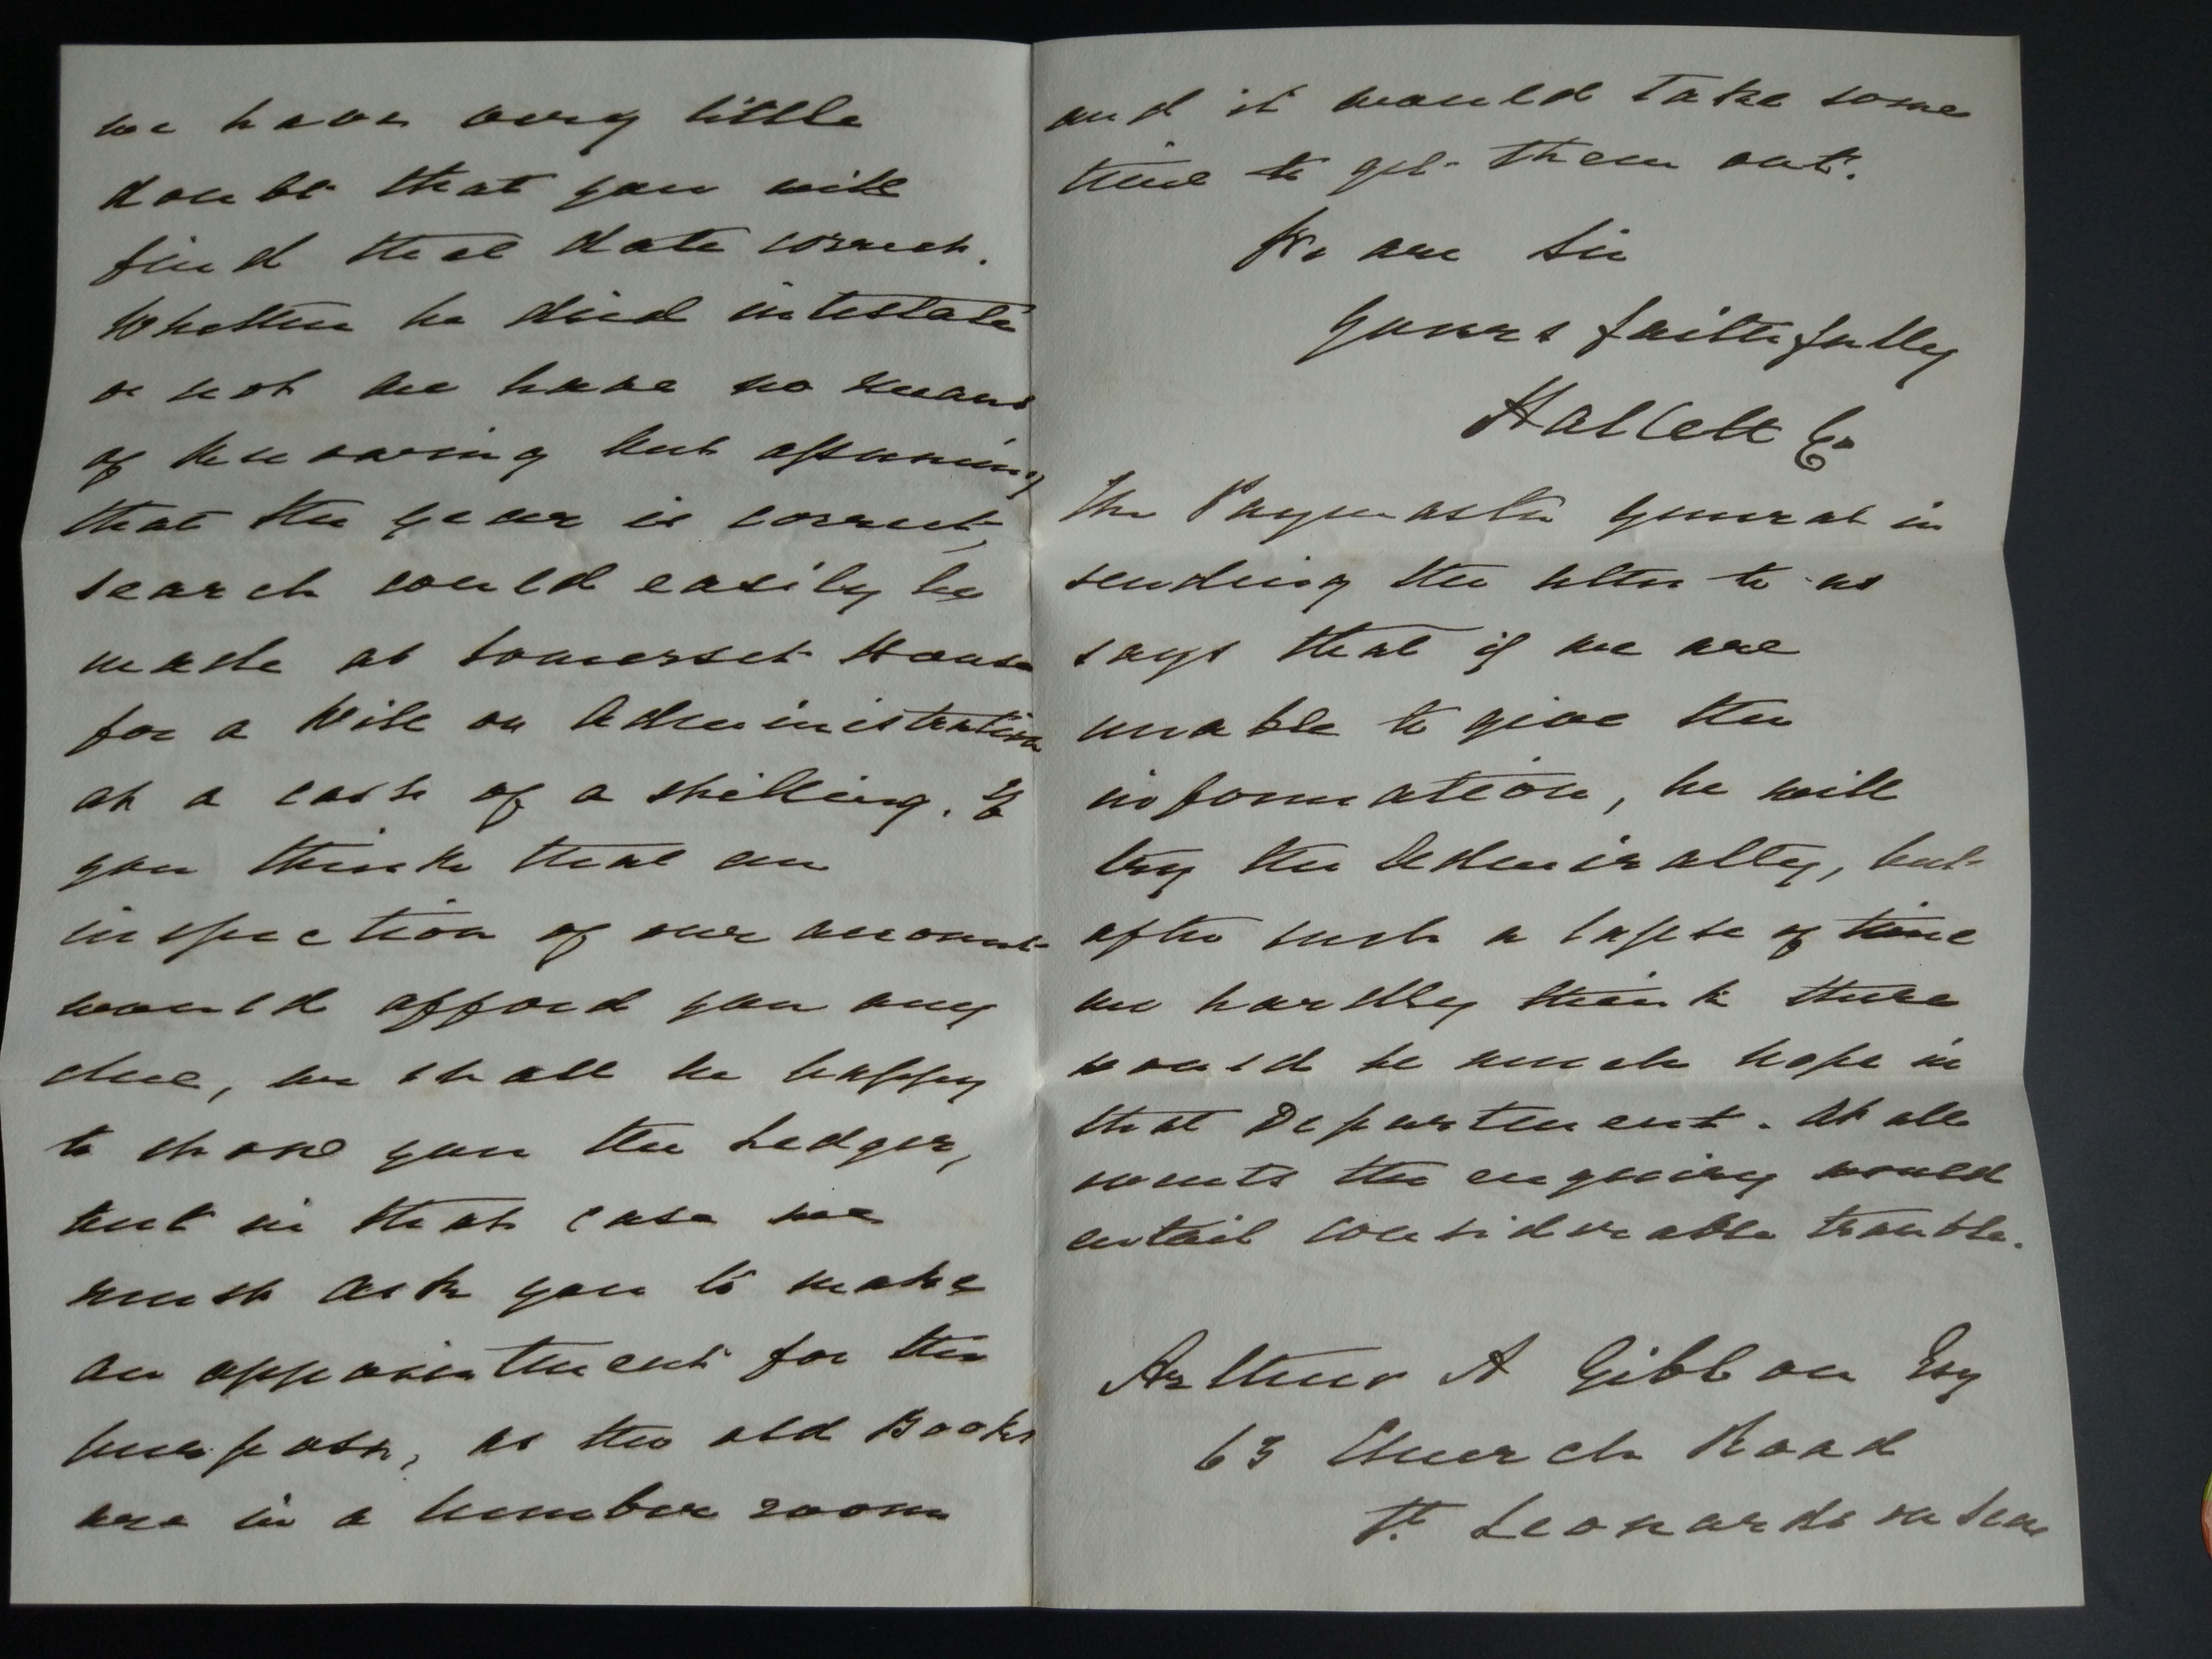 we have very little
doubt that you will
find that date correct.
Whether he died intestate
or not we have no means
of knowing but assuming
that the year is correct,
search could easily be
made at Somerset House
for a Will or Administration
at a cost of a shilling. If
you think that an
inspection of our account
would afford you any
clue, we shall be happy
to show you the Ledger,
but in that case we
must ask you to make
an appointment for the
purpose, as the old Books
are in a lumber room
and it would take some
time to get them out.
We are Sir
Yours faithfully
Hallett Co
The Paymaster General in
sending the letter to us
says that if we are
unable to give the
information, he will
try the Admiralty, but
after such a lapse of time
we hardly think there
would be much hope in
that Department. At all
events the enquiry would
entail considerable trouble.
Arthur A Gibbon Esq
63 Church Road
St Leonards on Sea